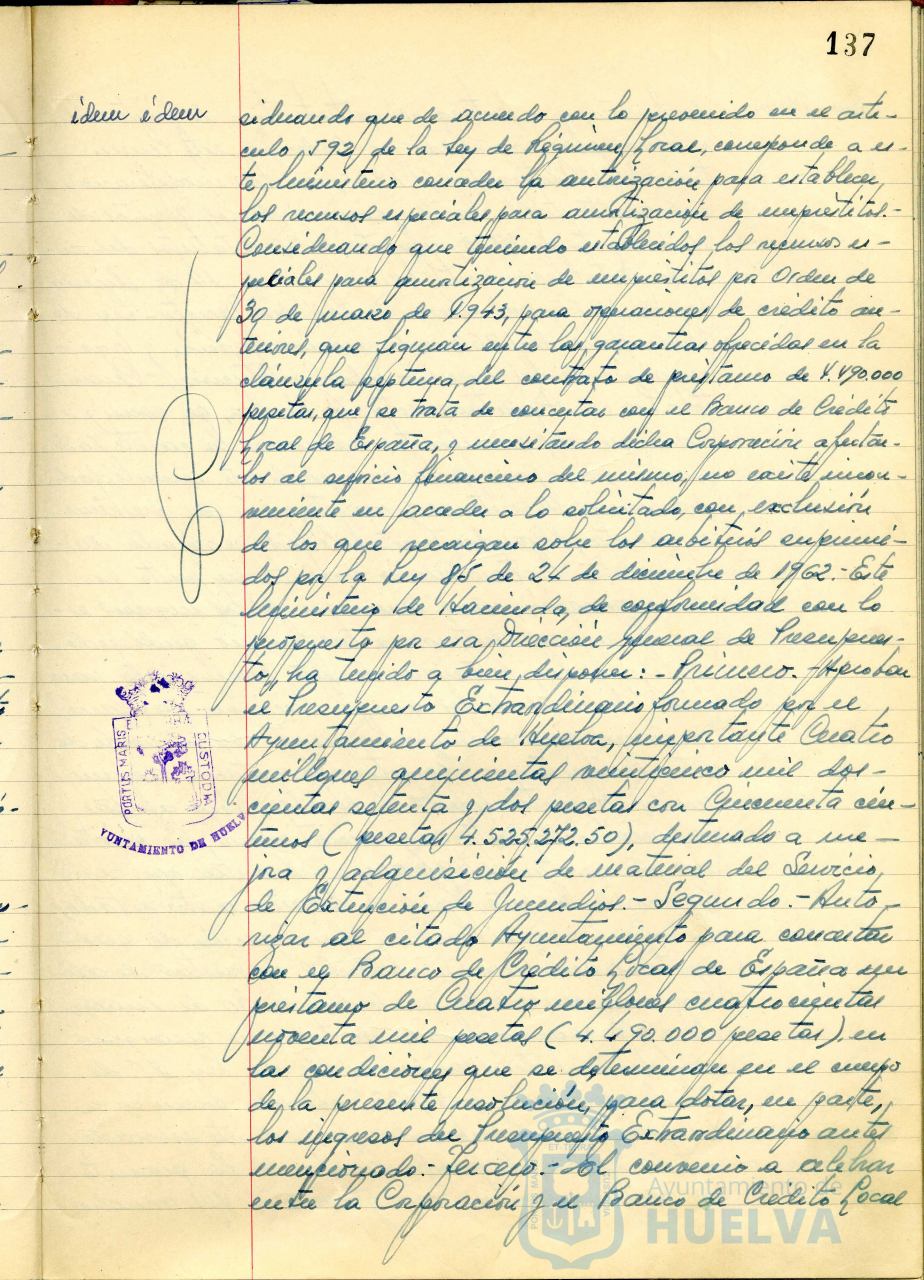 137
idem idem
siderando que de acuerdo con lo prevenido en el artí-
culo 592 de la Ley de Régimen Local, corresponde a es-
te Ministerio conceder la autorización para establecer
los recursos especiales para amortización de empréstitos.-
Considerando que teniendo establecidos los recursos es-
peciales para amortización de empréstitos por Orden de
30 de marzo de 1.943, para operaciones de crédito an-
teriores, que figuran entre las garantías ofrecidas en la
cláusula septima, del contrato de préstamo de 4.490.000
pesetas, que se trata de concertar con el Banco de Crédito
Local de España, y necesitando dicha Corporación afectar-
los al servicio financiero del mismo, no existe incon-
veniente en acceder a lo solicitado, con exclusión
de los que recaigan sobre los arbitrios suprimi-
dos por la Ley 85 de 24 de diciembre de 1962.- Este
Ministerio de Hacienda, de conformidad con lo
propuesto por esa Dirección General de Presupues-
to, ha tenido a bien disponer: - Primero. - Aprobar
el Presupuesto Extraordinario formado por el
Ayuntamiento de Huelva, importante Cuatro
millones quinientas veinticinco mil dos-
cientas setenta y dos pesetas con Cincuenta cén-
timos (pesetas 4.525.272.50), destinado a me-
jora y adquisición de material del Servicio
de Extinción de Incendios.- Segundo.- Auto-
rizar al citado Ayuntamiento para concertar
con el Banco de Crédito Local de España un
préstamo de Cuatro millones cuatrocientas
noventa mil pesetas (4.490.000 pesetas) en
las condiciones que se determinan en el cuerpo
de la presente resolución, para dotar, en parte,
los ingresos del Presupuesto Extraordinario antes
mencionado.- Tercero.- El convenio a celebrar
entre la Corporación y el Banco de Crédito Local
PORTUS MARIS
CUSTODIA
YUNTAMIENTO DE HUELV
Ayuntamiento de
HUELVA